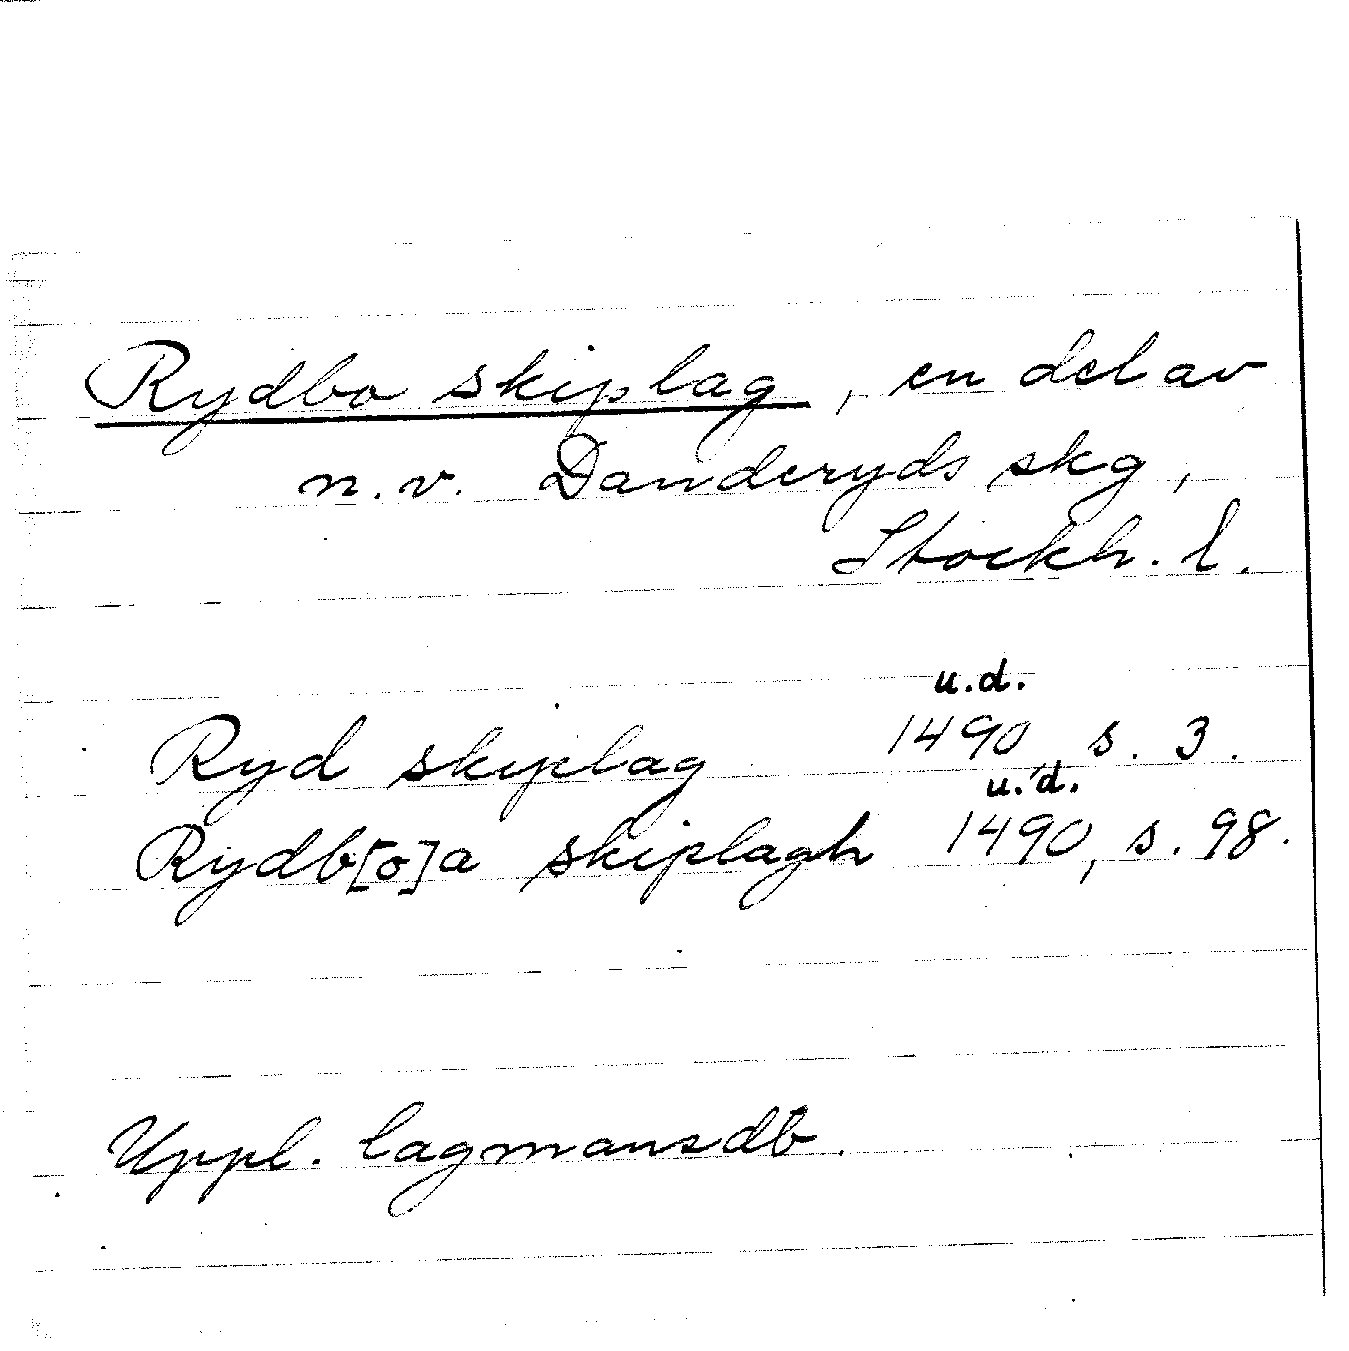 Rydbo skiplag, en del av
n.v. Danderyds skg,
Stockh. l.
u.d.
Ryd skiplag 1490 s. 3.
u.d.
Rydb[o]a skiplagh 1490, s. 98.
Uppl. lagmansdb.